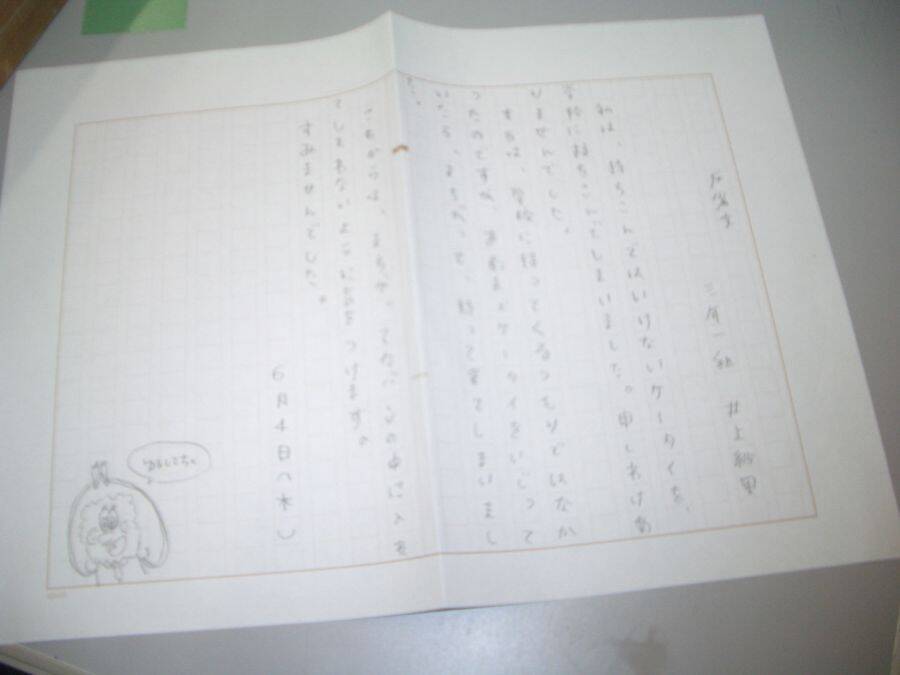 反省文 三年一組 井上紗里
私は、持ちこんではいけないケータイを、
学校に持ちこんでしまいました。申しわけあ
りませんでした。
本当は、学校に持ってくるつもりではなか
ったのですが、直前までケータイをいじって
いたら、まちがって、持って来てしまいまし
た。
これからは、まちがって の中に入れ
てしまわないように気をつけます。
すみませんでした。
6月4日(木)
ゆるしてちょ